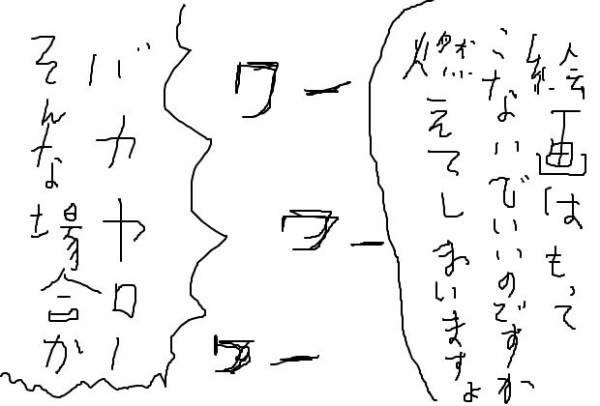 絵画はもって
こないでいいのですか
燃えてしまいますよ
ワー
ワー
ワー
バカヤロー
そんな場合か